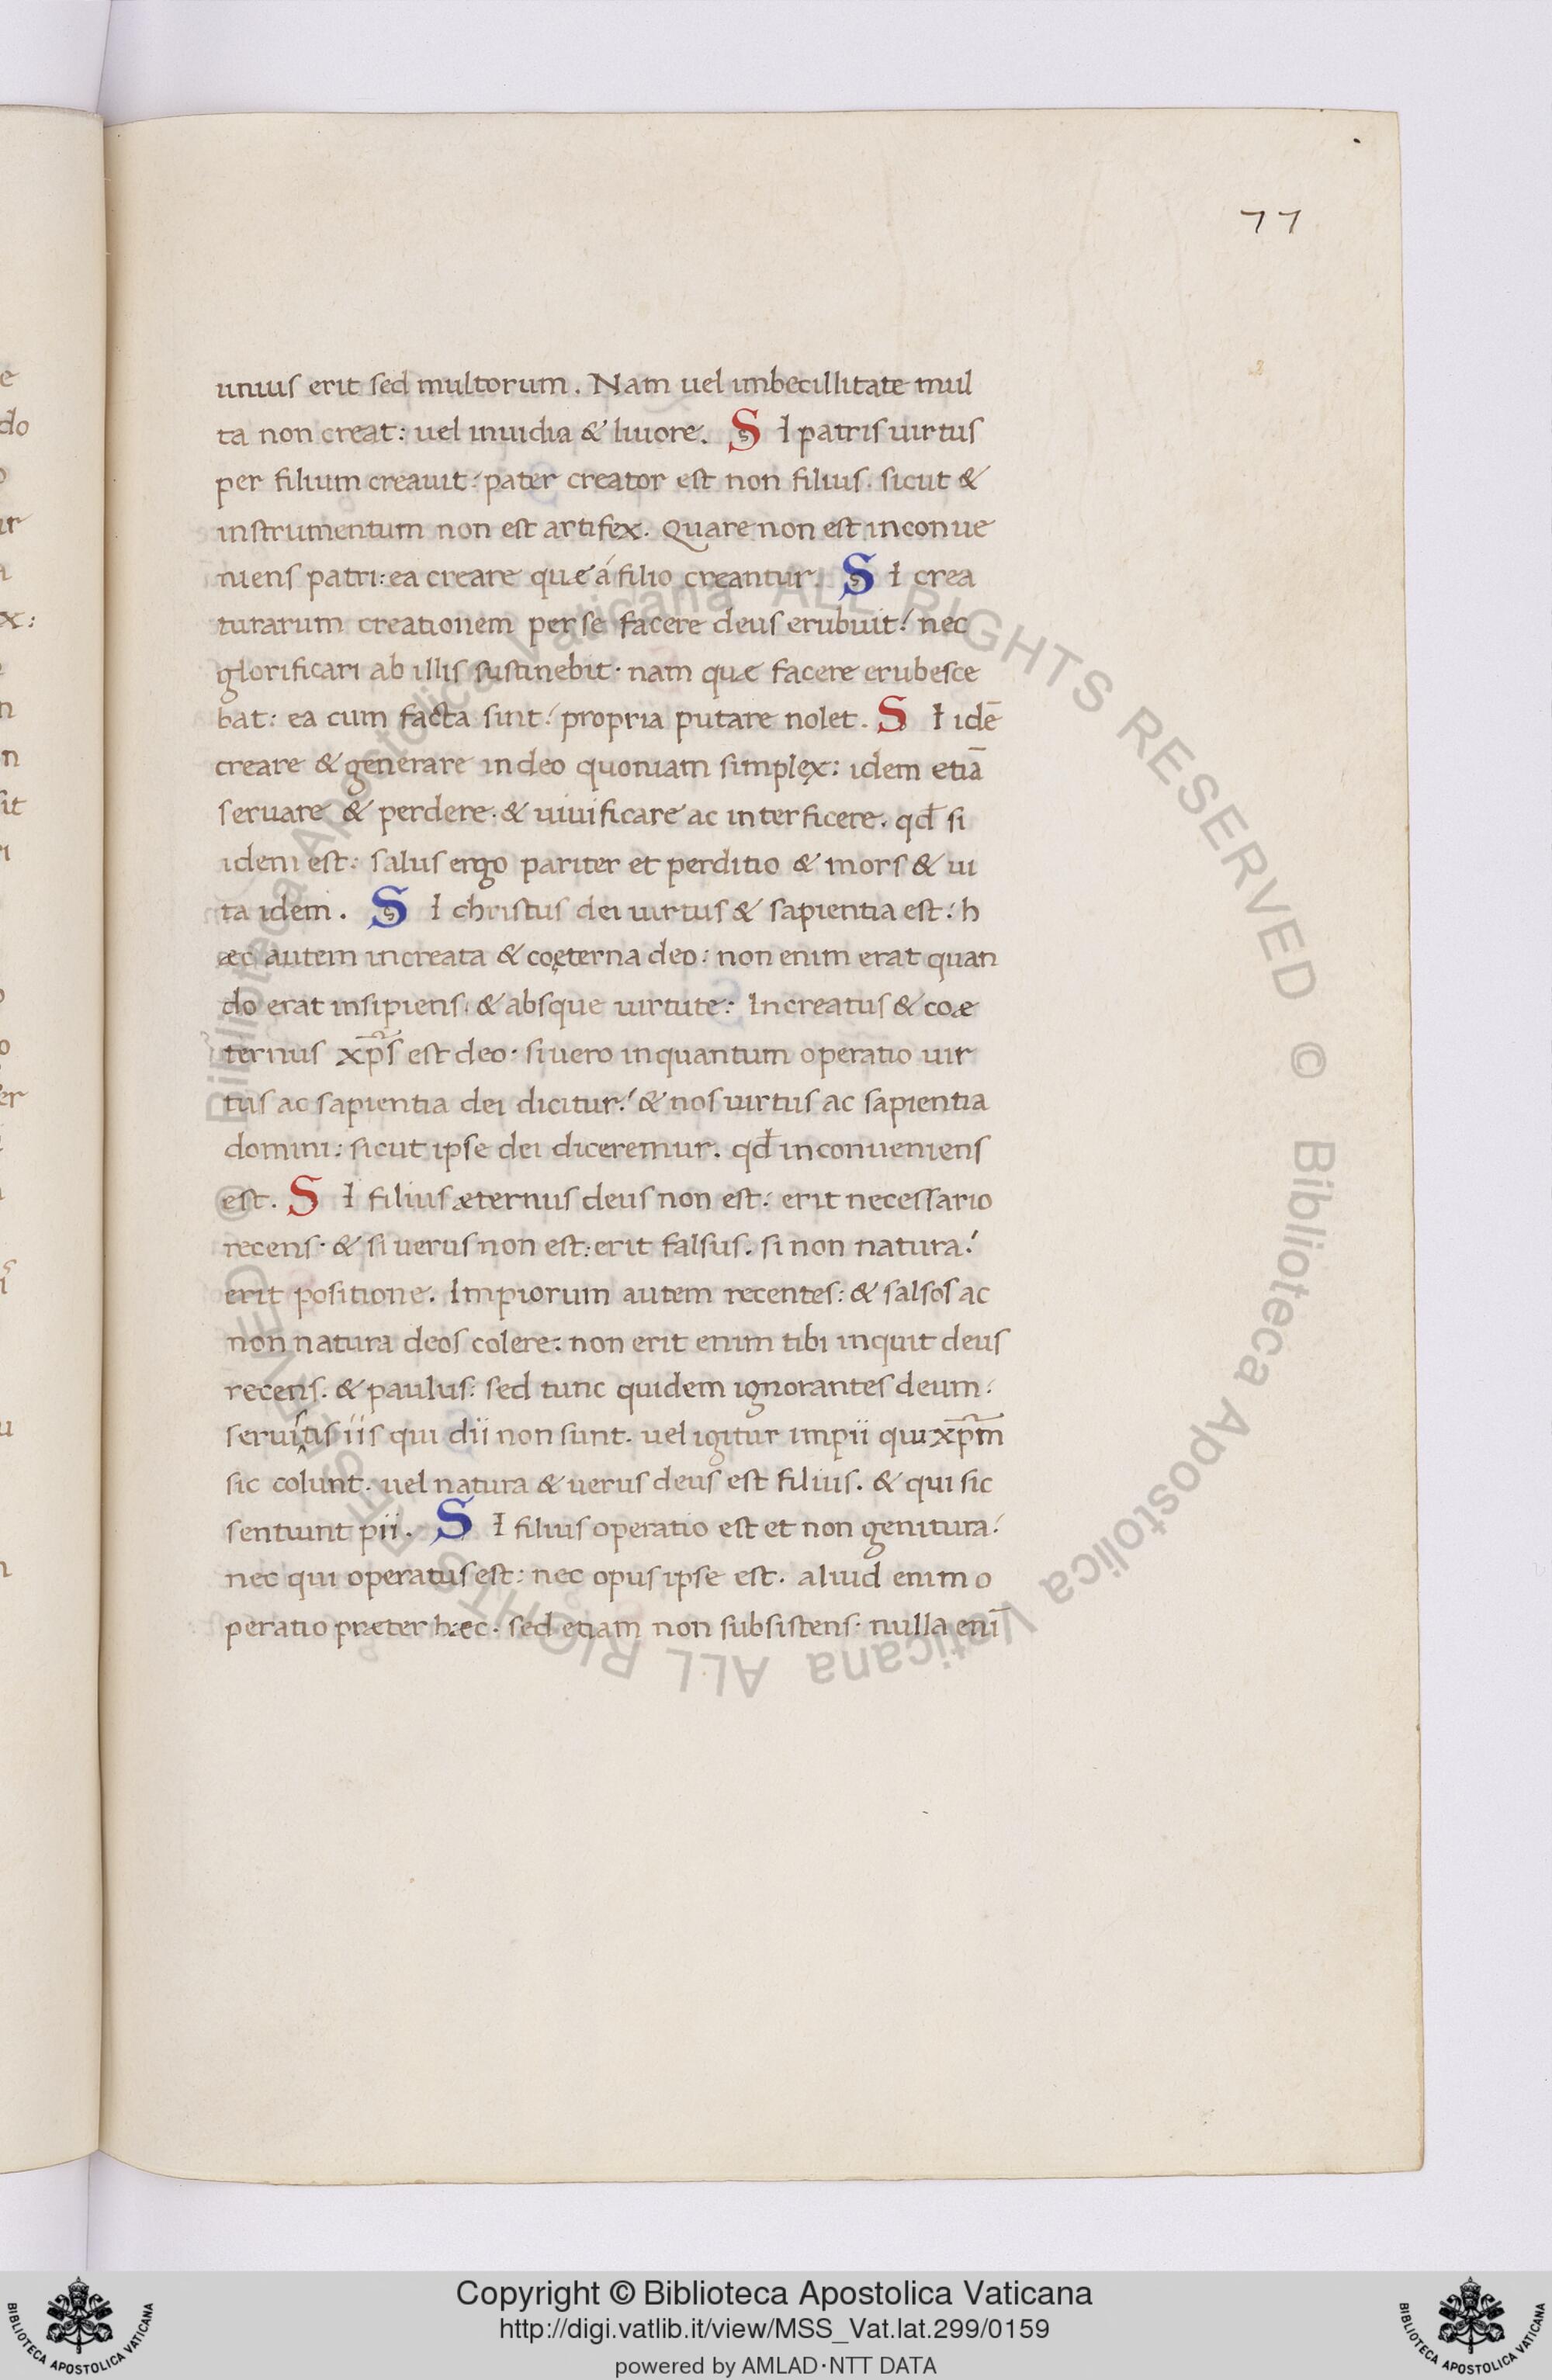 77
unius erit sed multorum. Nam uel imbecillitate mul
ta non creat: uel inuidia & liuore. SI patris uirtus
per filium creauit: pater creator est non filius. sicut &
instrumentum non est artifex. Quare non est inconue
niens patri: ea creare que á filio creantur. SI crea
turarum creationem per se facere deus erubuit: nec
glorificari ab illis sustinebit· nam quæ facere erubesce
bat: ea cum facta sint: propria putare nolet. SI idē
creare & generare in deo quoniam simplex: idem etiā
seruare & perdere· & uiuificare ac interficere. qd̄ si
idem est: salus ergo pariter et perditio & mors & ui
ta idem. SI christus dei uirtus & sapientia est: h
æc autem increata & coęterna deo: non enim erat quan
do erat insipiens. & absque uirtute: Increatus & coæ
ternus xp̄s est deo· si uero inquantum operatio uir
tus ac sapientia dei dicitur: & nos uirtus ac sapientia
domini: sicut ipse dei diceremur. qd̄ inconueniens
est. SI filius æternus deus non est: erit necessario
recens· & si uerus non est: erit falsus. si non natura:
erit positione. Impiorum autem recentes: & salsos ac
non natura deos colere: non erit enim tibi inquit deus
recens. & paulus: sed tunc quidem ignorantes deum:
seruistis iis qui dii non sunt. uel igitur impii qui xp̄m
sic colunt. uel natura & uerus deus est filius. & qui sic
sentiunt pii. SI filius operatio est et non genitura:
nec qui operatus est: nec opus ipse est. aliud enim o
peratio præter hæc· sed etiam non subsistens· nulla eni̅
Copyright © Biblioteca Apostolica Vaticana
http://digi.vatlib.it/view/MSS_Vat.lat.299/0159
powered by AMLAD·NTT DATA